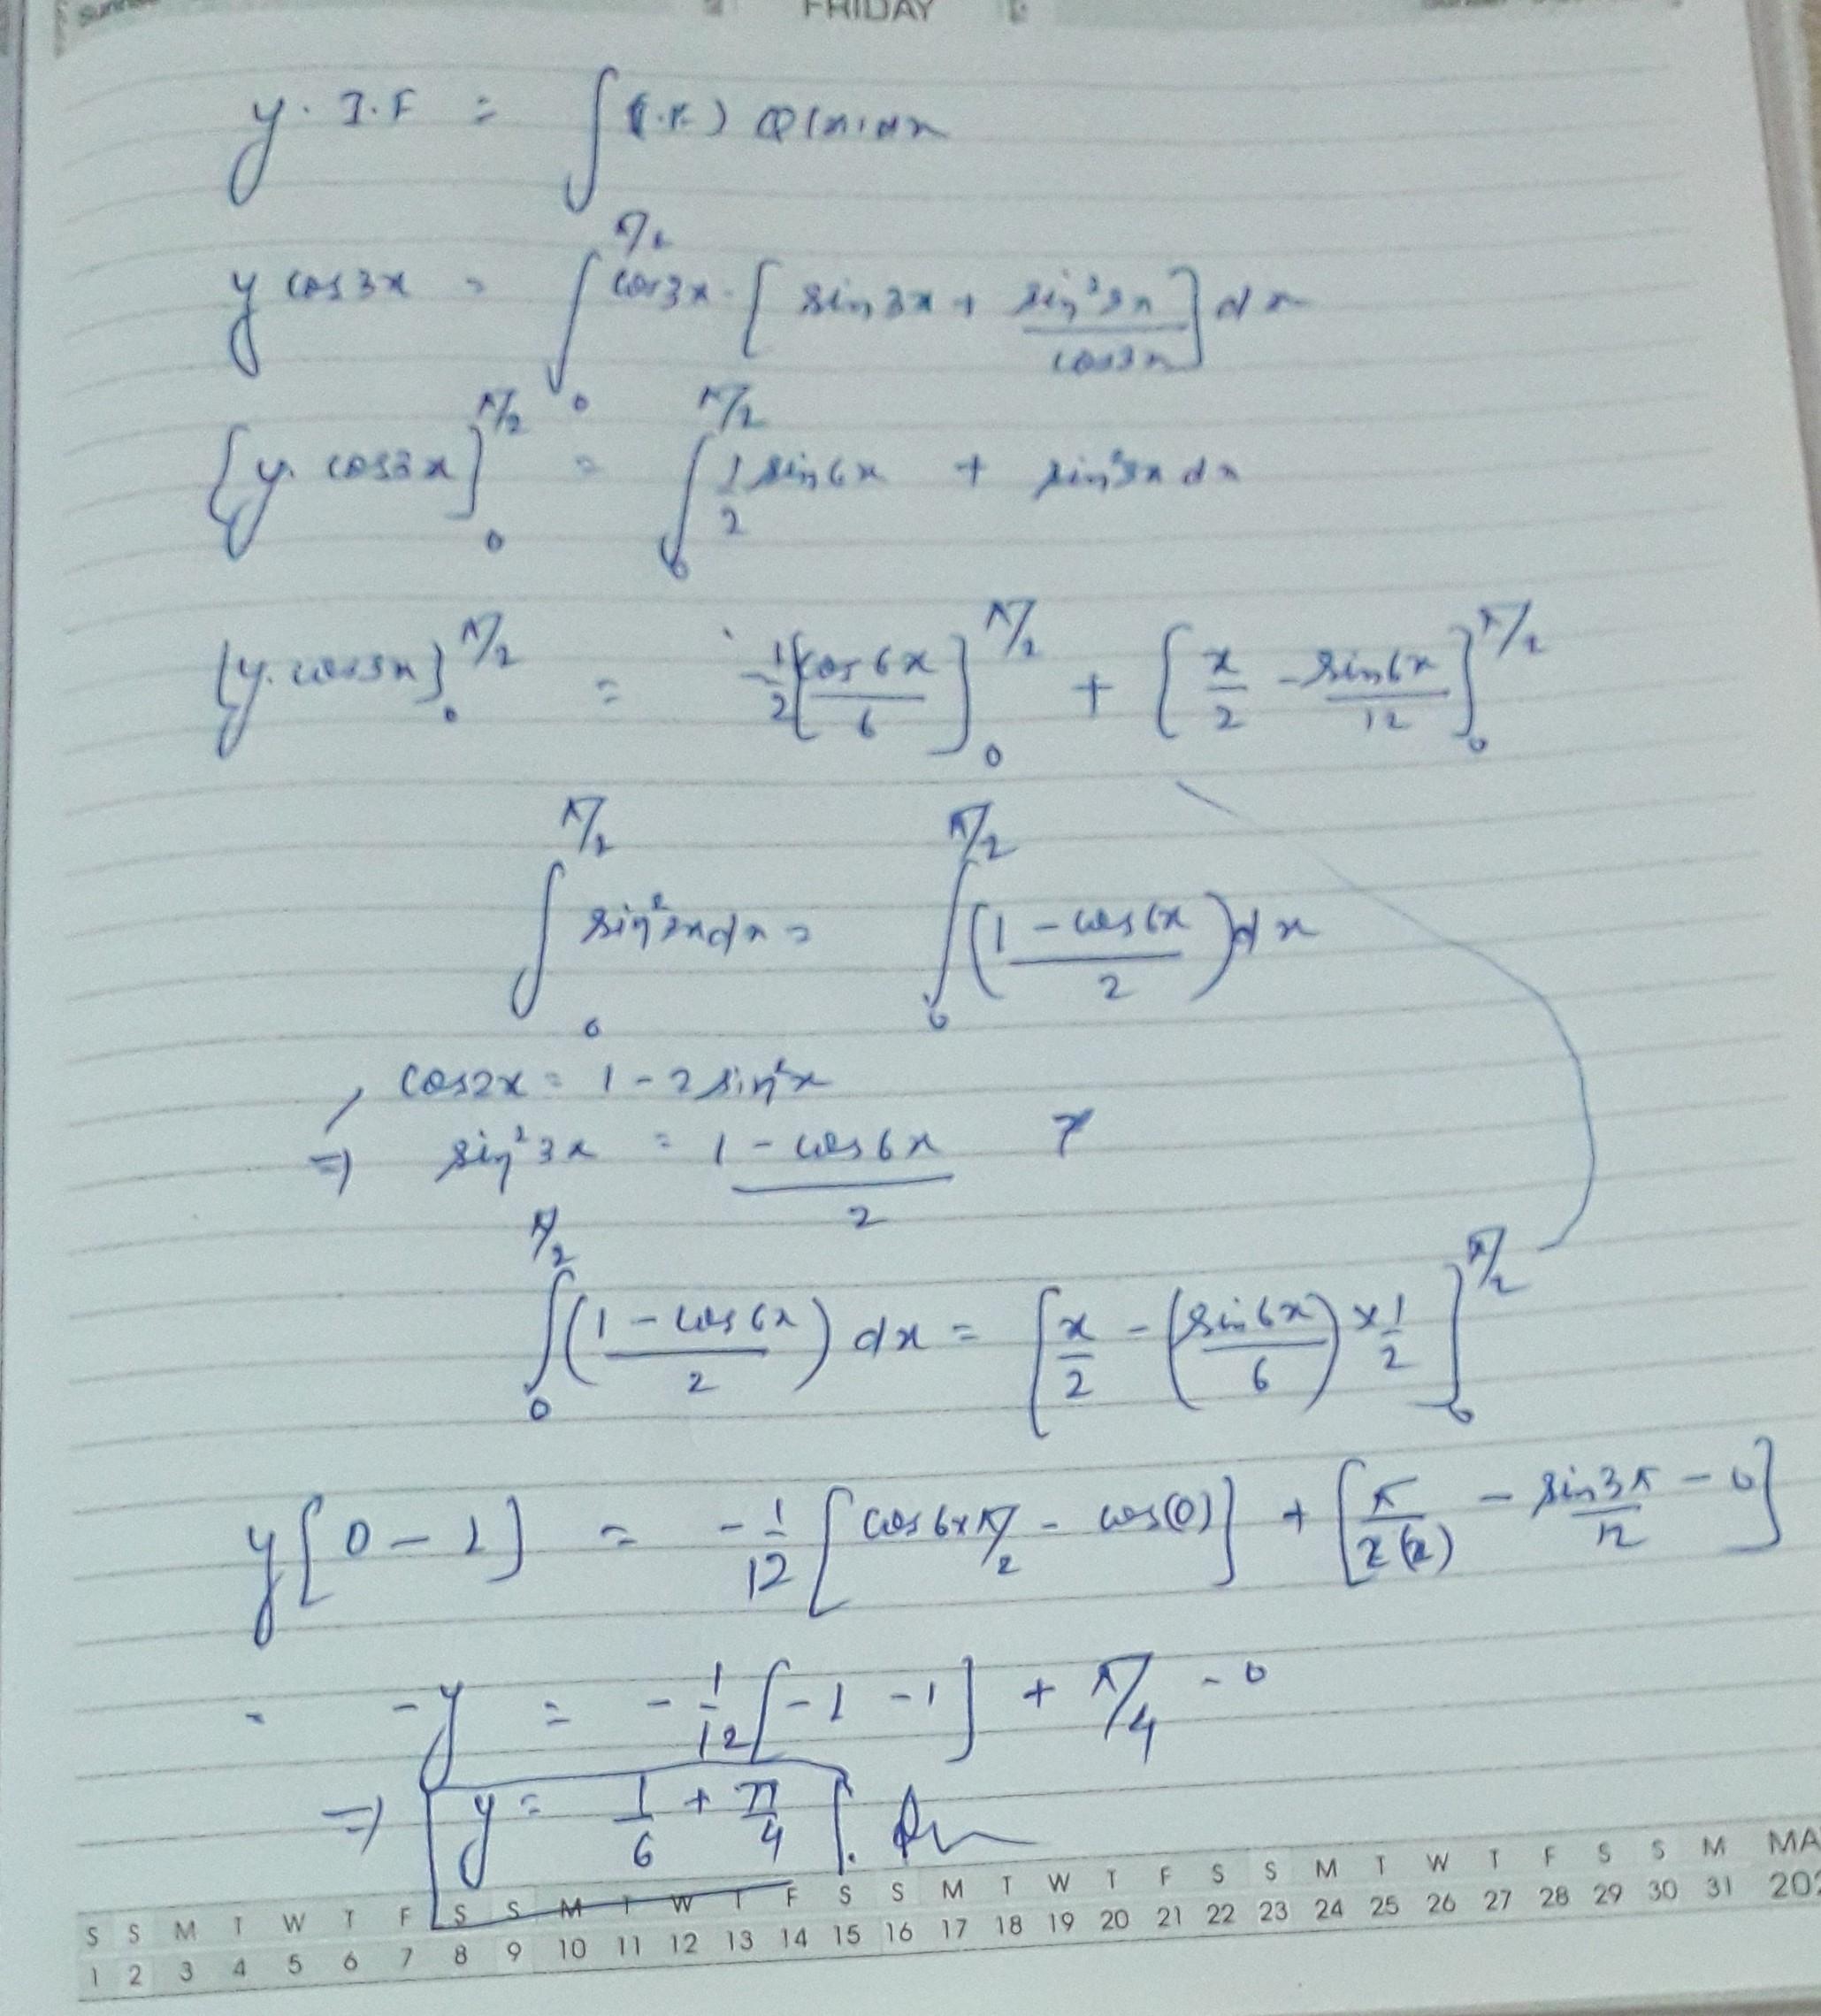 FRIDAY
y. I.F = ∫ (I.F) Q(x) dx
y cos3x = ∫₀^{π/2} cos3x . [ sin3x + sin²3x / cos3x ] dx
[y. cos3x]₀^{π/2} = ∫₀^{π/2} 1/2 sin6x + sin²3x dx
[y. cos3x]₀^{π/2} = -1/2 [cos6x / 6]₀^{π/2} + [ x/2 - sin6x / 12 ]₀^{π/2}
∫₀^{π/2} sin²3x dx = ∫₀^{π/2} ( 1 - cos6x / 2 ) dx
, cos2x = 1 - 2 sin²x
⇒ sin²3x = 1 - cos6x / 2
∫₀^{π/2} ( 1 - cos6x / 2 ) dx = [ x/2 - ( sin6x / 6 ) × 1/2 ]₀^{π/2}
y [ 0 - 1 ] = -1/12 [ cos 6×π/2 - cos(0) ] + [ π / 2(2) - sin3π / 12 - 0 ]
= -y = -1/12 [ -1 -1 ] + π/4 - 0
⇒ y = 1/6 + π/4 .
S S M T W T F S S M T W T F S S M T W T F S S M T W T F S S M MA
1 2 3 4 5 6 7 8 9 10 11 12 13 14 15 16 17 18 19 20 21 22 23 24 25 26 27 28 29 30 31 202